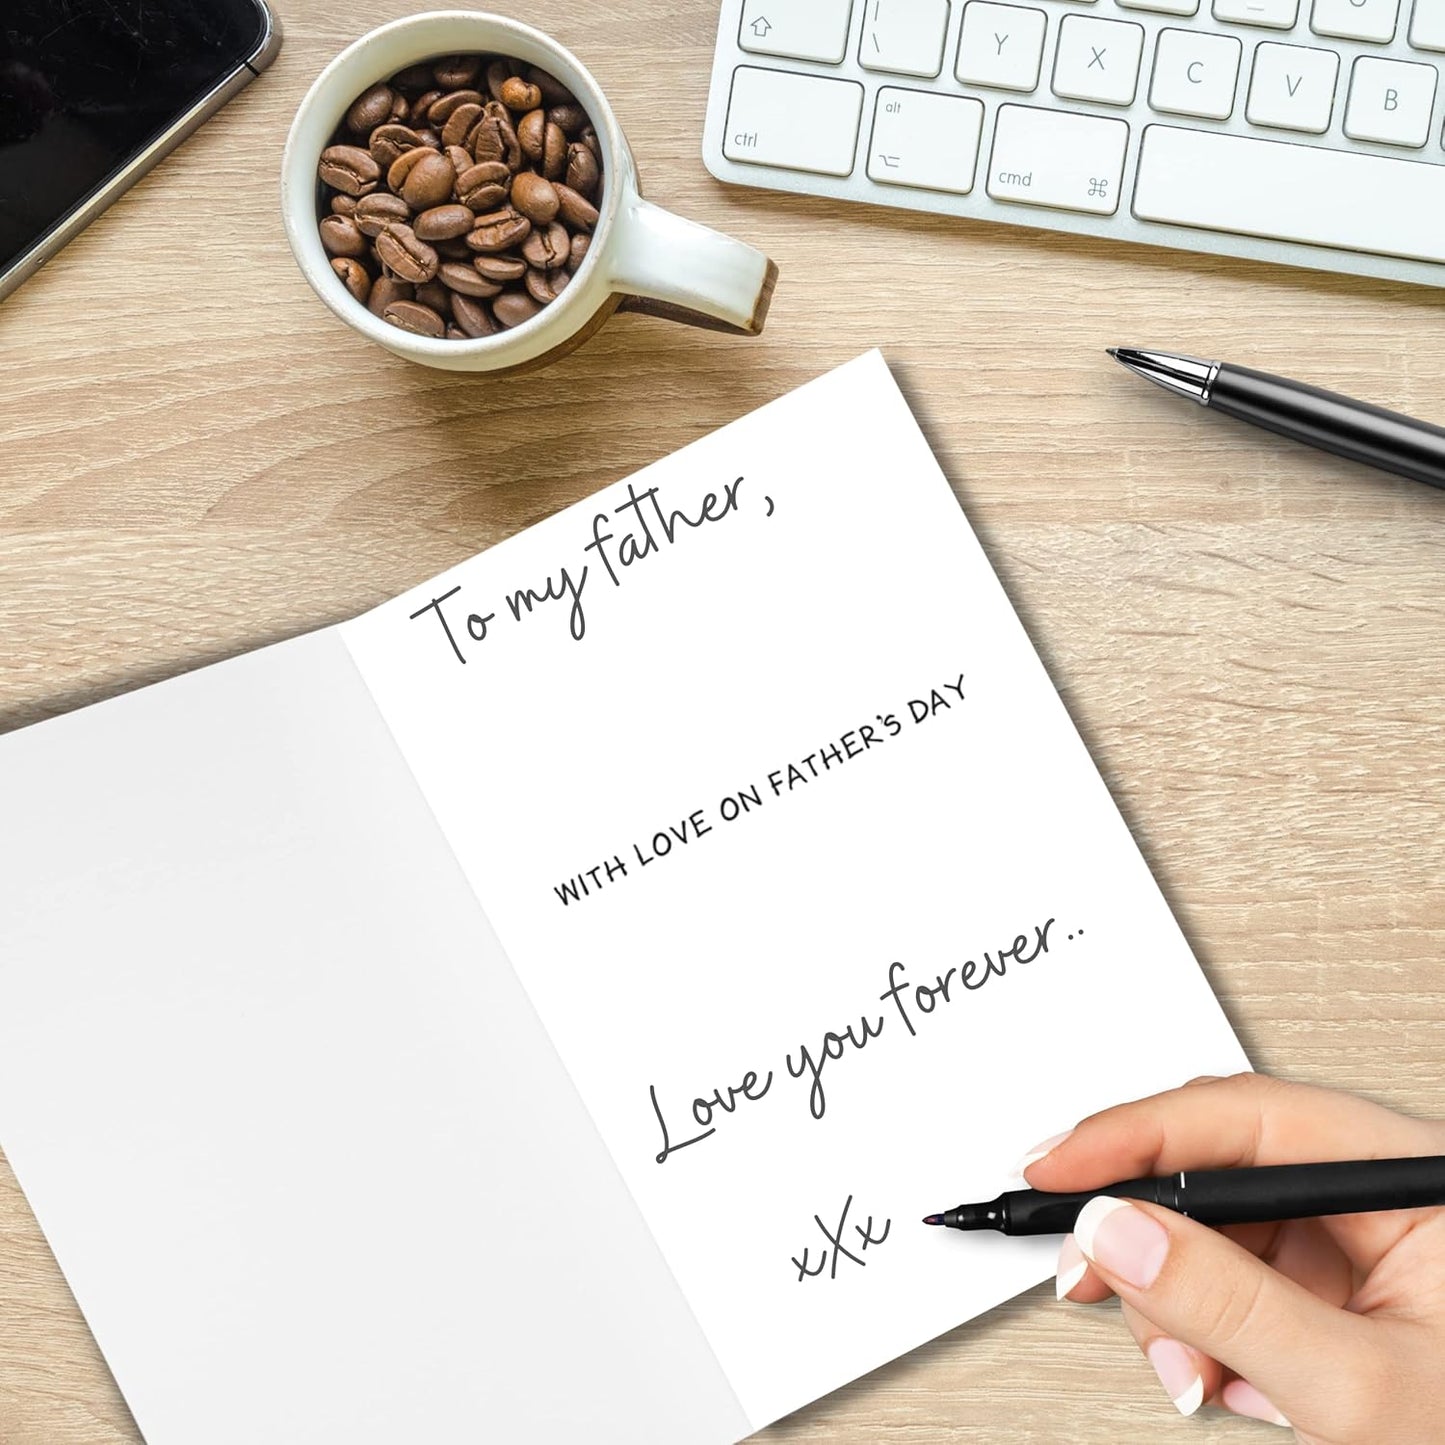 Y X C V B
ctrl alt cmd ⌘
To my father,
WITH LOVE ON FATHER'S DAY
Love you forever..
xXx